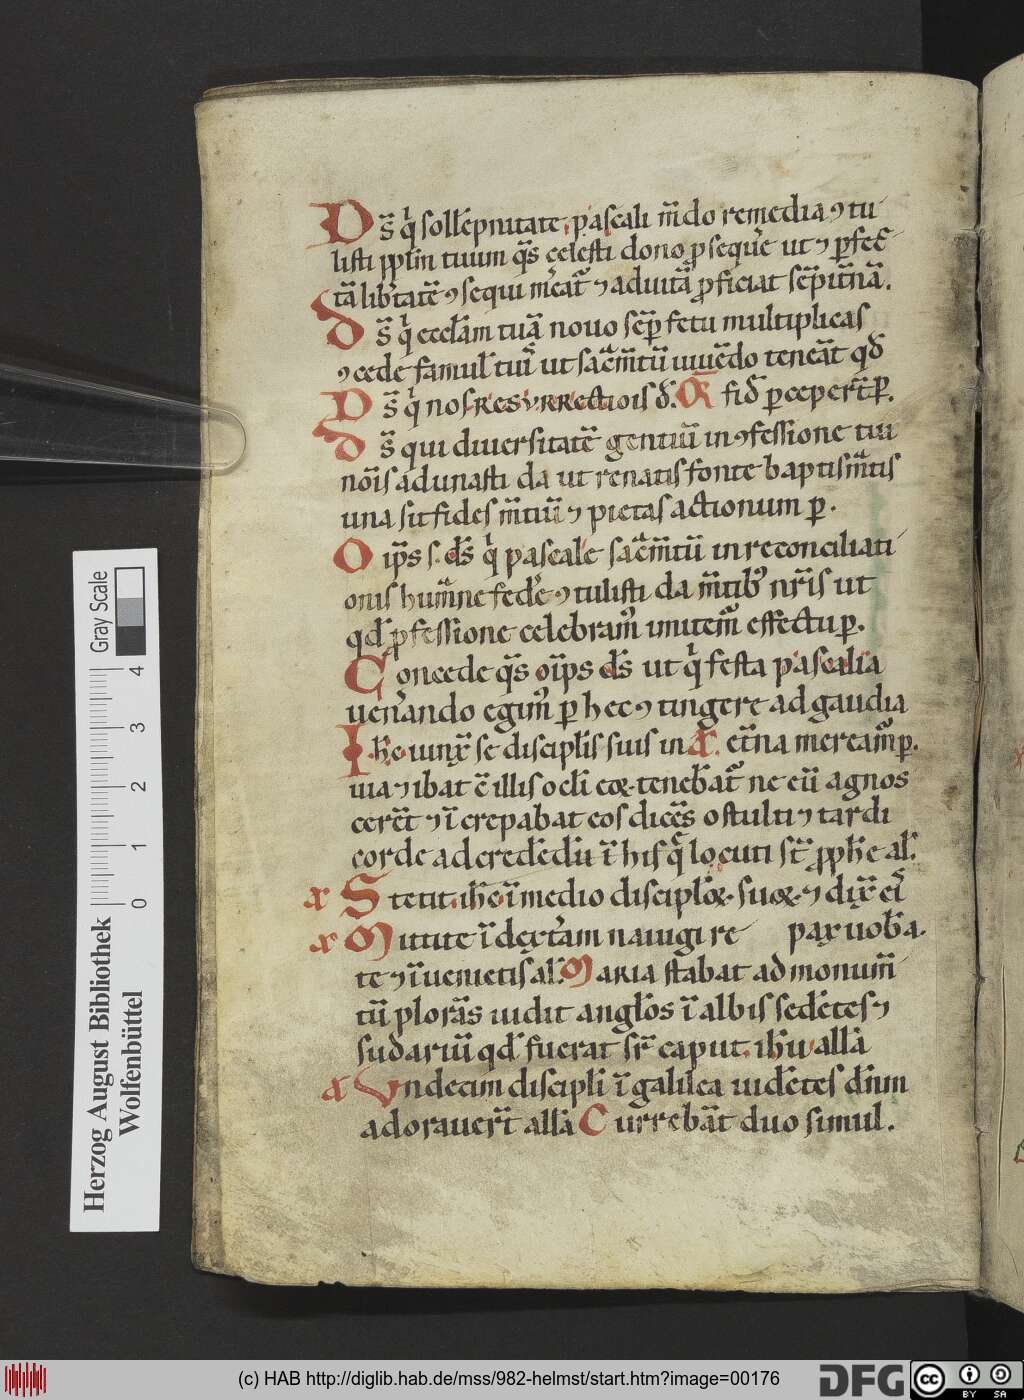 Ds̄ q̇ sollēpnitate pascali m̄do remedia ꝯtu
listi pplm̄ tuum qs̄ celesti dono ꝓsequere ut ⁊ ꝑfec
tā lib̾tatē ꝯsequi m̾eat᷑ ⁊ ad uitā ꝓficiat sēpit̾nā.
Ds̄ q̇ eccl̄am tuā nouo sēꝑ fetu multiplicas
ꝯcede famul̄ tuis ut sac̄m̄tū uiuēdo teneāt qd̄
Ds̄ q̇ nos resurrectiois d̄. fid̄ ꝑceper̄t ꝑ.
Ds̄ qui diuersitatē gentiū in ꝯfessione tui
noīs adunasti da ut renatis fonte baptism̄tis
una sit fides m̄tiū ⁊ pietas actionum ꝑ.
Oīps s. ds̄ q̇ pascale sac̄m̄tū in reconciliati
onis humāne fede̾ ꝯtulisti da m̄tib᷒ nr̄is ut
qd̄ ꝓfessione celebram᷒ imitem᷑ effectu ꝑ.
Concede qs̄ oīps ds̄ ut q̇ festa pascalia
uen̾ando egim᷒ ꝑ hec ꝯtingere ad gaudia
Ihc iunx̄ se discipl̄is suis in et̾na mereamur ꝑ.
uia ⁊ ibat c̄ illis ocl̄i eoꝝ tenebāt᷑ ne eū agnos
cerēt ⁊ īcrepabat eos dicēs o stulti ⁊ tardi
corde ad credēdū ī his q̄ locuti st̄ ꝓph̄e al̄.
Stetit ih̄c ī medio discipl̄oꝝ suoꝝ ⁊ dix̄ eis
Mittite ī dext̾am nauigi re pax uob̄ a.
te ⁊ īuenietis al̄. Maria stabat ad monum̄
tū plorās uidit angl̄os ī albis sedētes ⁊
sudariū qd̄ fuerat sr̄ caput ih̄u alla
Undecim discipl̄i ī galilea uidētes dn̄m
adorauer̄t alla Currebāt duo simul.
Gray Scale
4
3
2
1
0
Herzog August Bibliothek
Wolfenbüttel
(c) HAB http://diglib.hab.de/mss/982-helmst/start.htm?image=00176
DFG
cc
BY SA